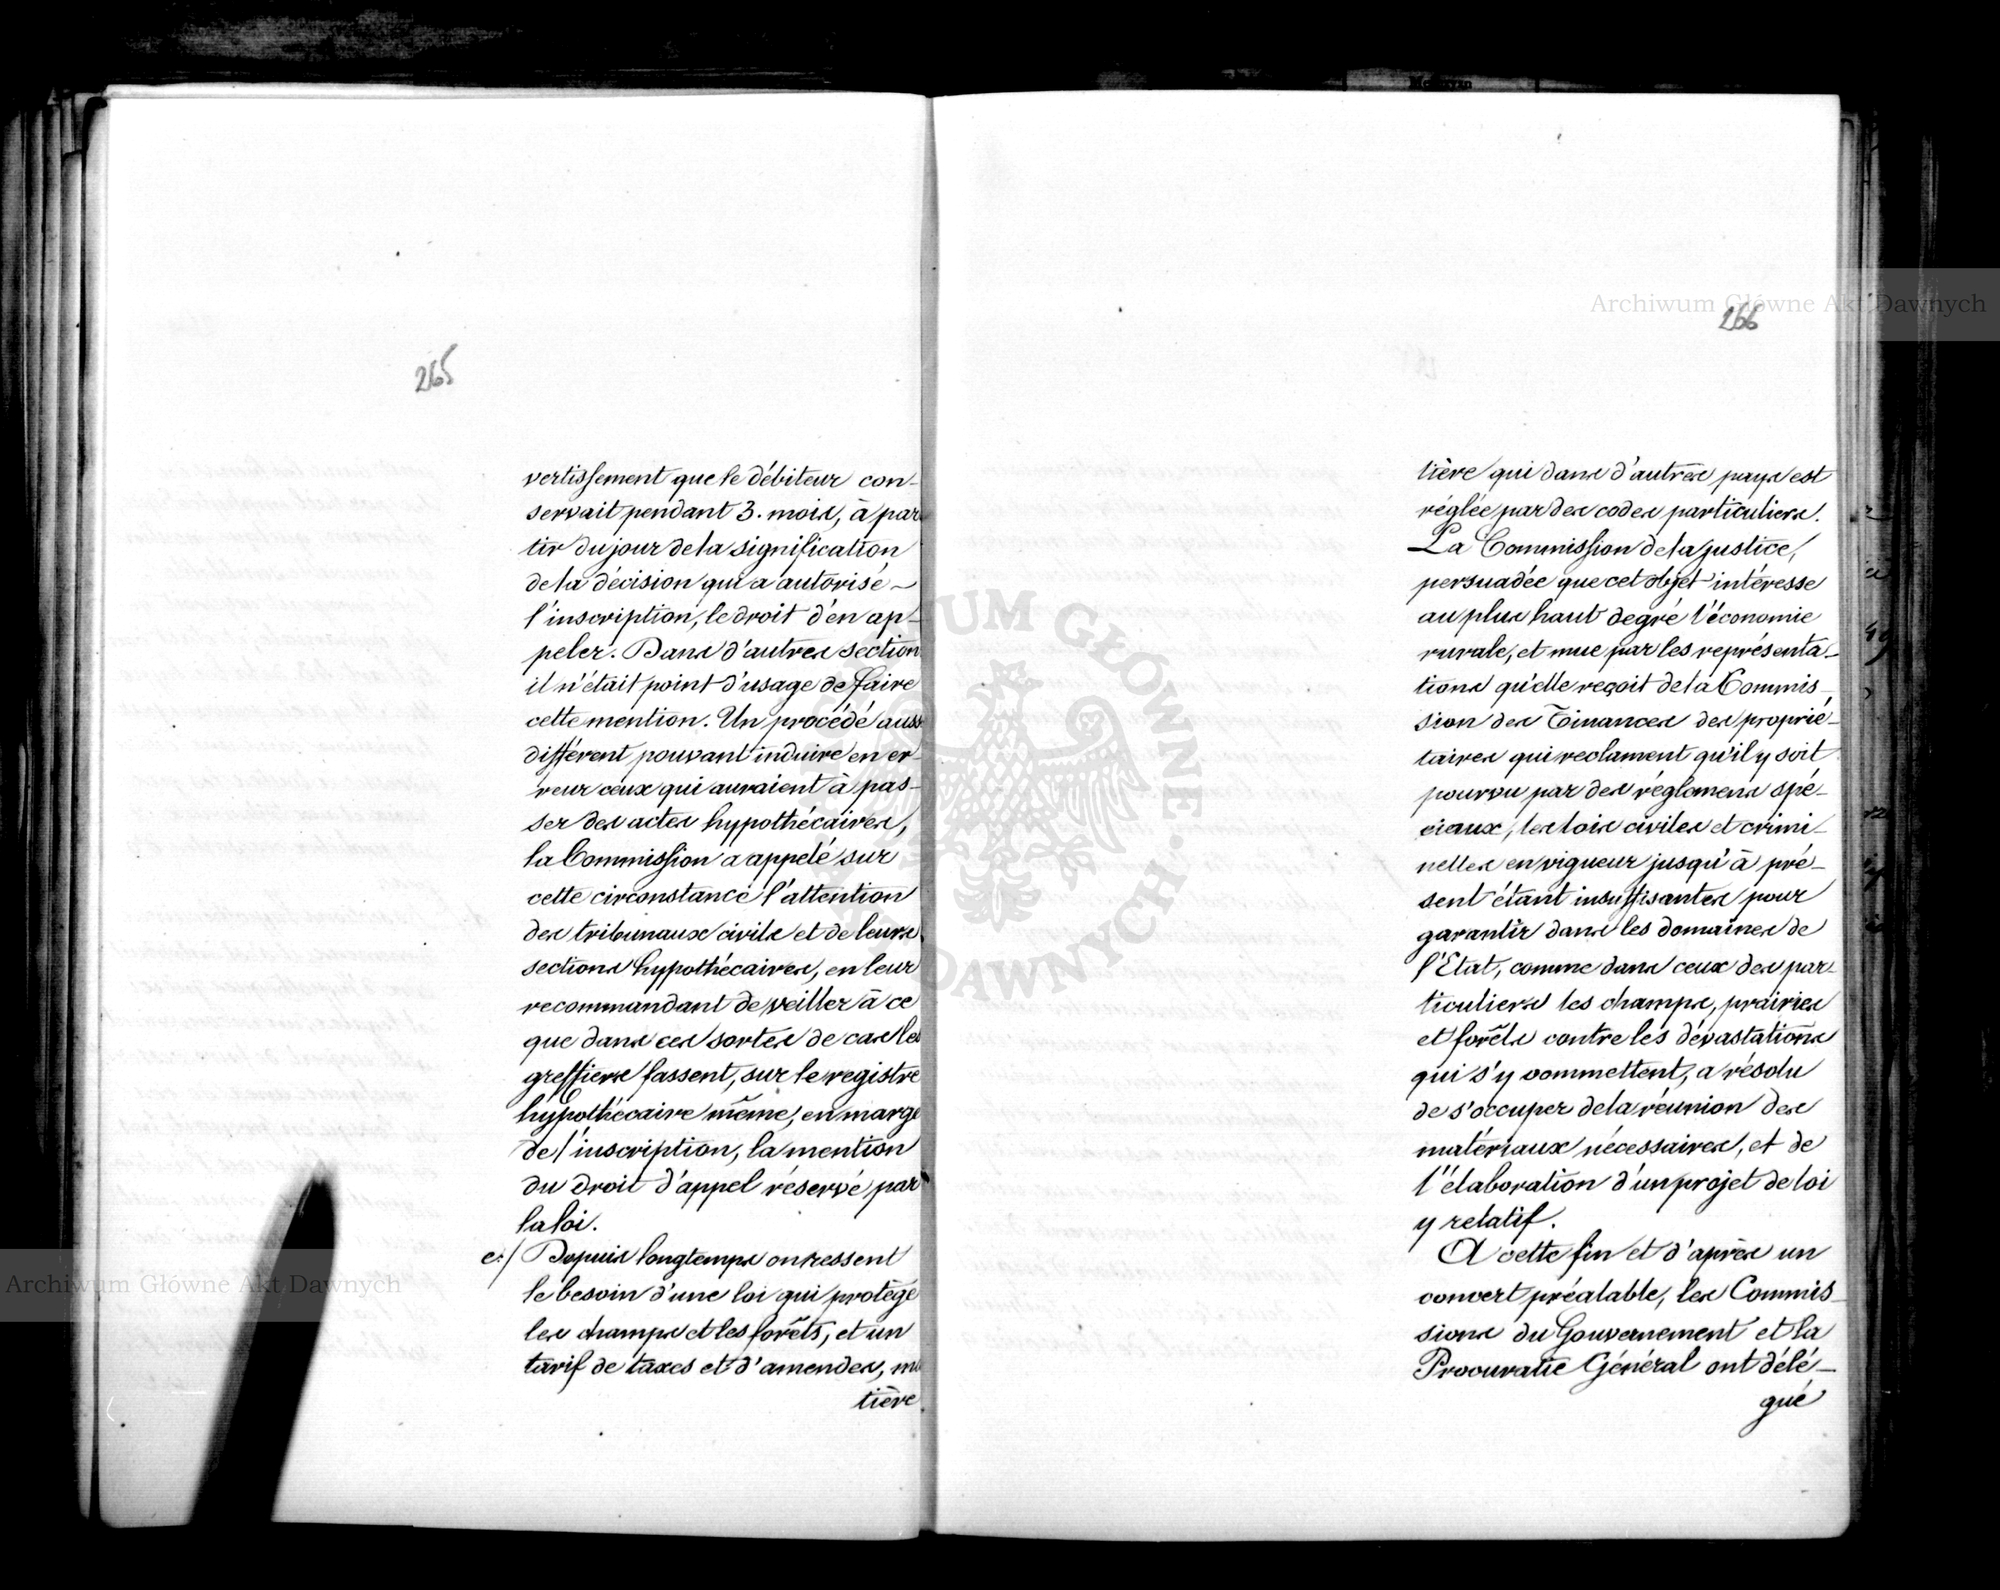 265
vertissement que le débiteur con-
servait pendant 3. mois, à par
tir du jour de la signification
de la décision qui a autorisé
l'inscription, le droit d'en ap-
peler. Dans d'autres section
il n'était point d'usage de faire
cette mention. Un procédé auss
différent pouvant induire en er-
reur ceux qui auraient à pas-
ser des actes hypothécaires,
la Commission a appelé sur
cette circonstance l'attention
des tribunaux civils et de leurs
sections hypothécaires, en leur
recommandant de veiller à ce
que dans ces sortes de cas les
greffiers fassent, sur le registre
hypothécaire même, en marge
de l'inscription, la mention
du droit d'appel réservé par
la loi.
e:/ Depuis longtemps on ressent
le besoin d'une loi qui protège
les champs et les forêts, et un
tarif de taxes et d'amendes, ma
tière
266
tière qui dans d'autres pays est
réglée par des codes particuliers.
La Commission de la justice,
persuadée que cet objet intéresse
au plus haut degré l'économie
rurale, et mue par les représenta-
tions qu'elle reçoit de la Commis-
sion des Finances des proprié-
taires qui reclament qu'il y soit
pourvu par des réglemens spé-
ciaux, les lois civiles et crimi-
nelles en vigueur jusqu'à pré-
sent étant insuffisantes pour
garantir dans les domaines de
l'Etat, comme dans ceux des par-
ticuliers les champs, prairies
et forêts contre les dévastations
qui s'y commettent, a résolu
de s'occuper de la réunion des
matériaux nécessaires, et de
l'élaboration d'un projet de loi
y relatif.
A cette fin et d'après un
concert préalable, les Commis-
sions du Gouvernement et la
Procuratie Général ont délé-
gué
Archiwum Główne Akt Dawnych
Archiwum Główne Akt Dawnych